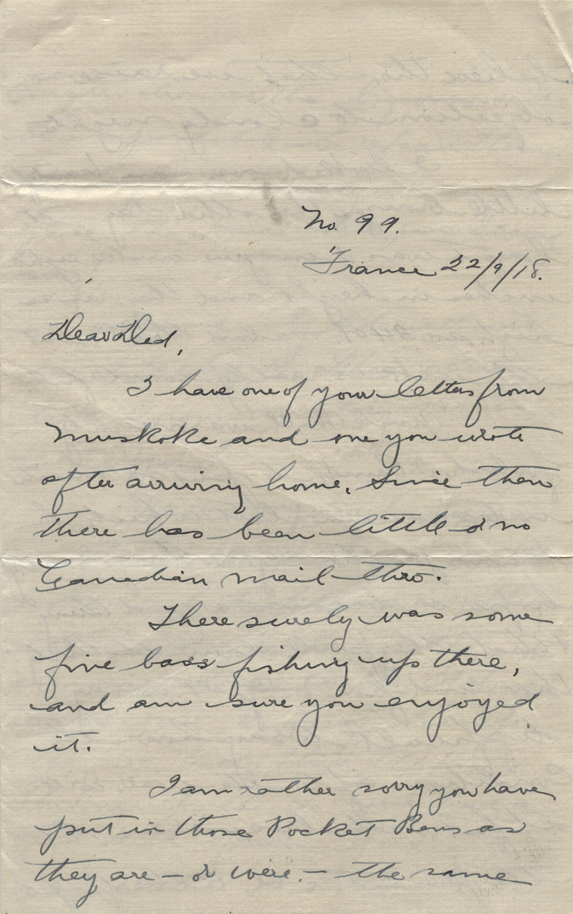 No. 99.
France 22/9/18.
Dear Dad,
I have one of your letters from
Muskoka and one you wrote
after arriving home. Since then
there has been little or no
Canadian mail thro.
There surely was some
fine bass fishing up there,
and am sure you enjoyed
it.
I am rather sorry you have
put in those Pocket Bens as
they are – or were – the same